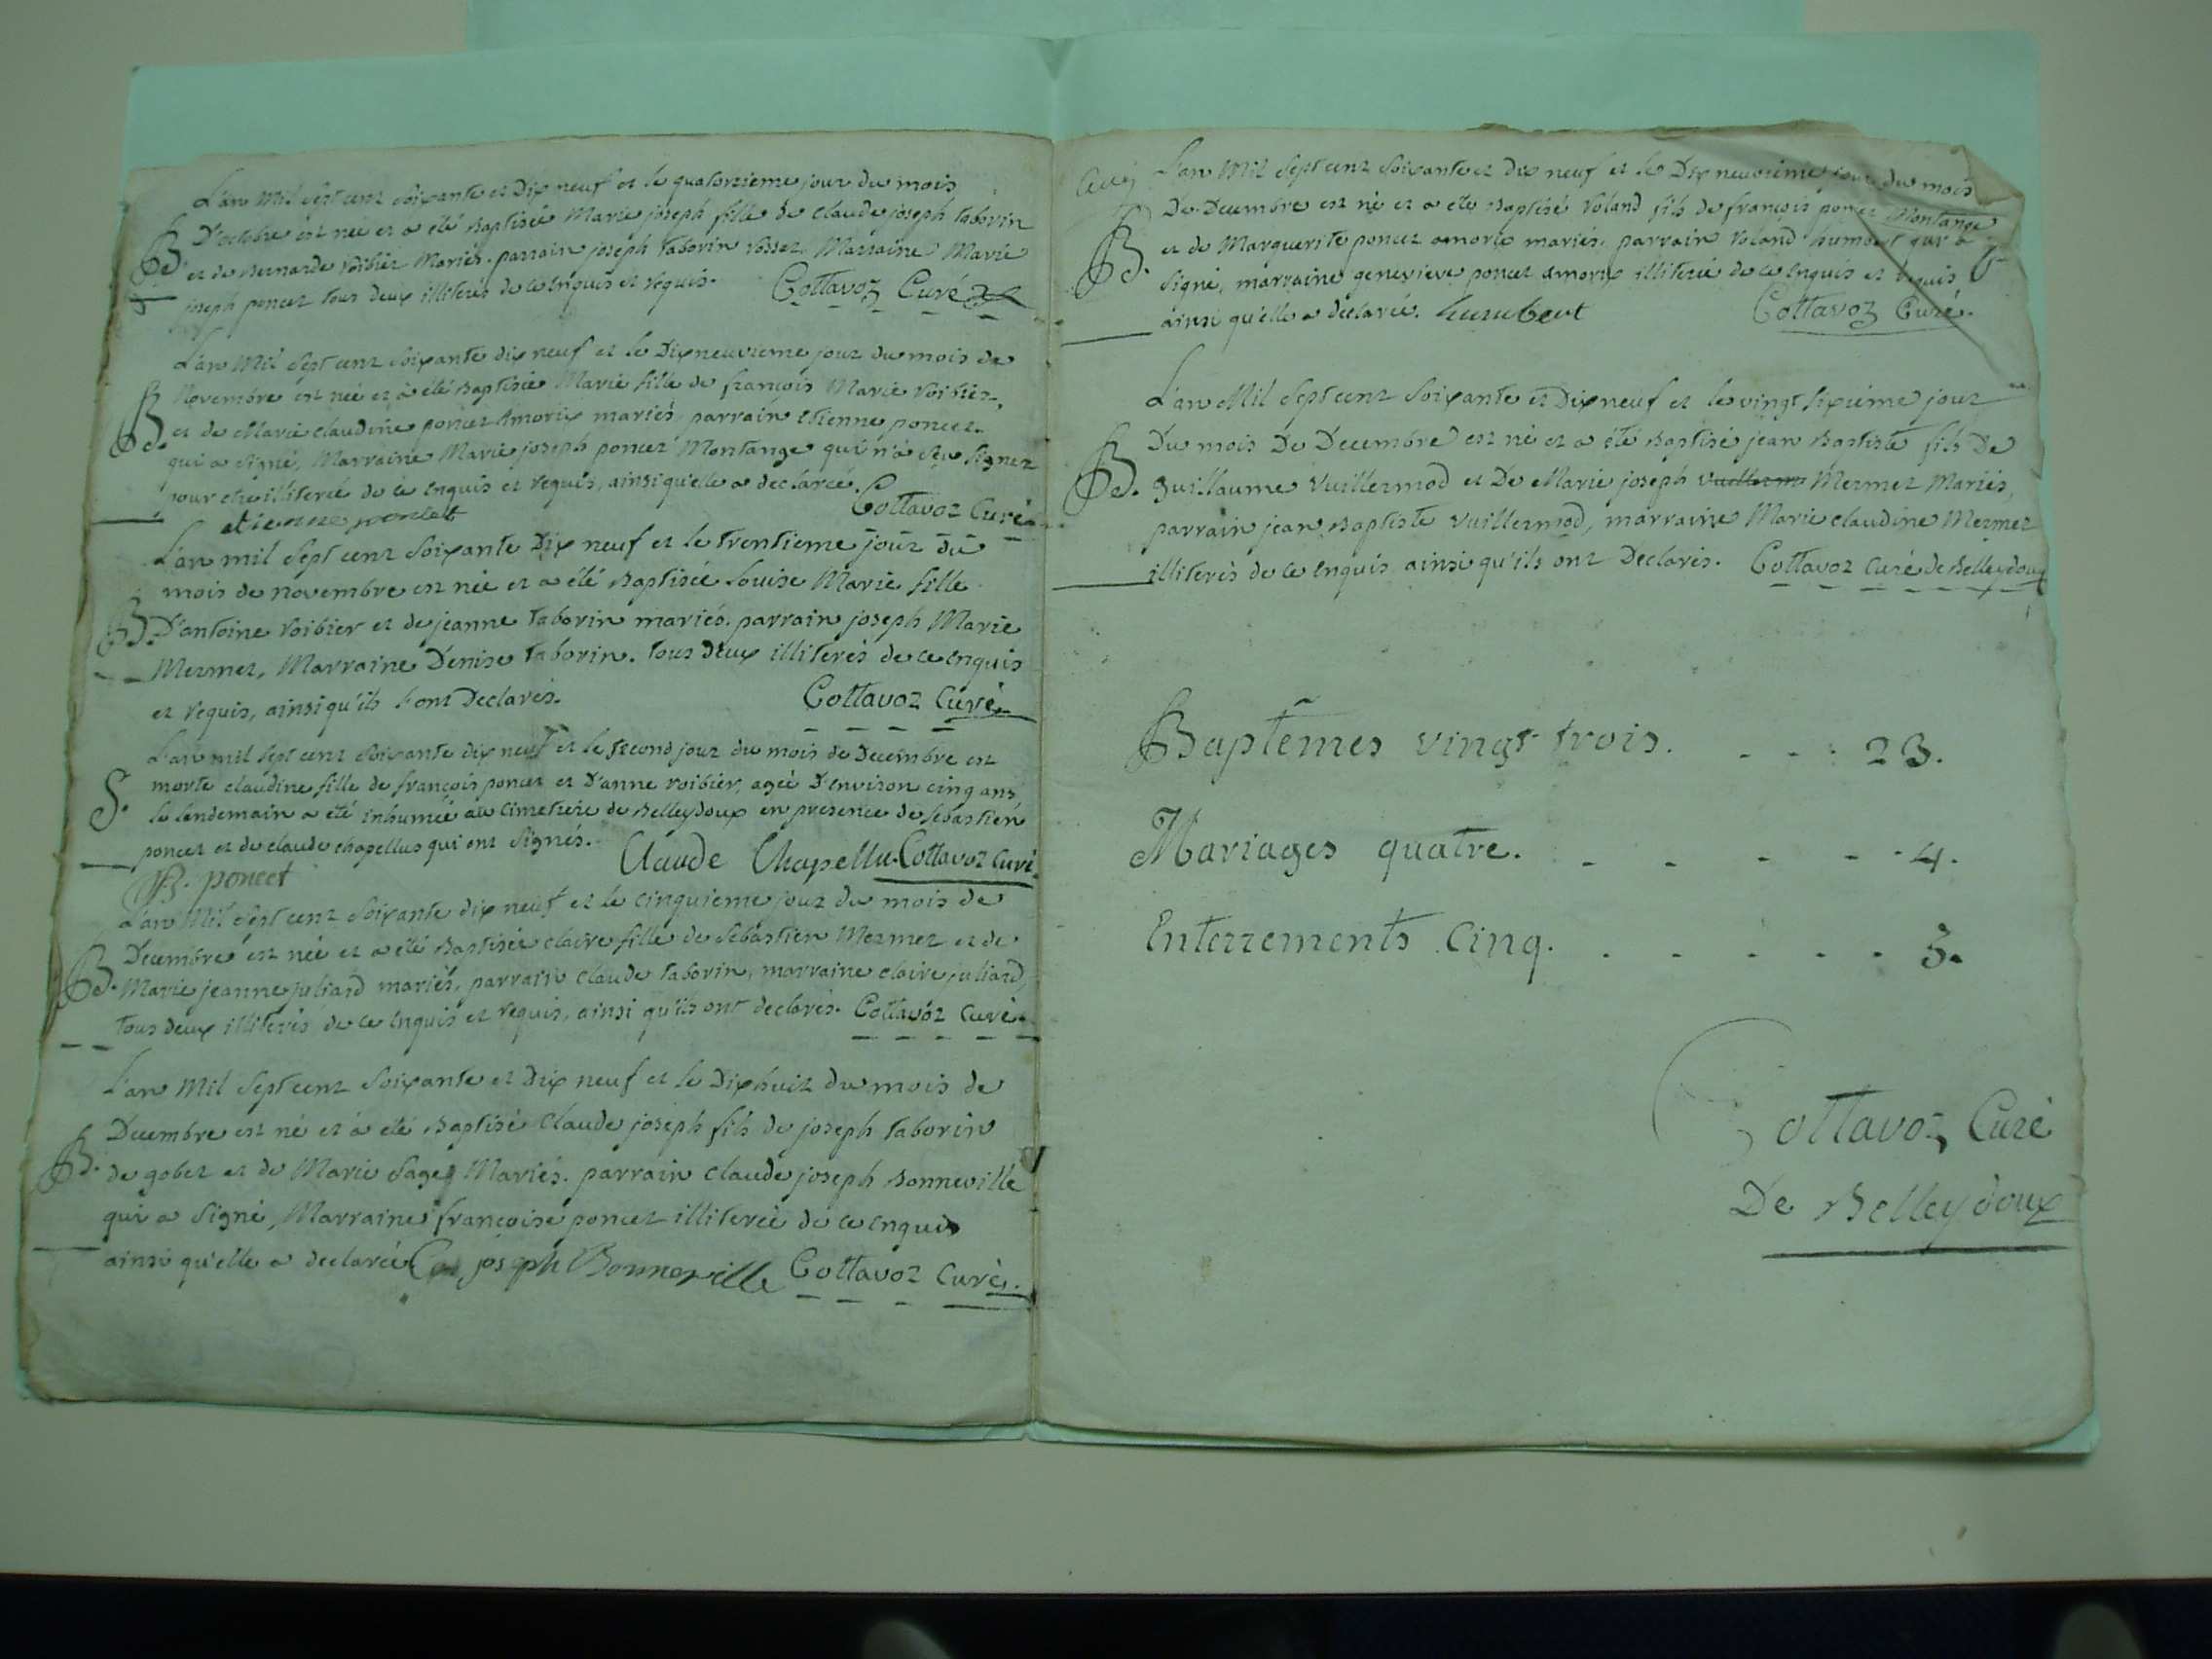 L'an Mil sept cent soixante et Dix neuf et le quatorzieme jour du mois
B. D'octobre est née et a été Baptisée Marie joseph fille de Claude joseph taborin
et de Bernarde Voibier Mariés. parrain joseph taborin rosset Marraine Marie
joseph poncet tous deux illiterés de ce enquis et requis. Cottavoz Curé
L'an Mil sept cent soixante dix neuf et le Dixneuvieme jour du mois de
Novembre est née et a été Baptisée Marie fille de françois Marie Voibier,
B. et de Marie claudine poncet Amorix mariés parrain Etienne poncet.
qui a signé, Marraine Marie joseph poncet Montange qui n'a sçu signer
pour etre illiterée de ce enquis et requis, ainsi qu'elle a declarée. Cottavoz Curé
etienne poncet
L'an mil sept cent soixante Dix neuf et le trentieme jour du
mois de novembre est née et a été Baptisée Louise Marie fille
B. D'antoine Voibier et de jeanne taborin mariés. parrain joseph Marie
Mermet, Marraine Denise taborin. tous deux illiterés de ce enquis
et requis, ainsi qu'ils l'ont Declarés. Cottavoz Curé
L'an mil sept cent soixante dix neuf et le second jour du mois de Decembre est
S. morte claudine fille de françois poncet et D'anne voibier, agée D'environ cinq ans,
le lendemain a été inhumée au Cimetiere de Belleydoux en presence de sebastien
poncet et de claude chapellus qui ont signés. Claude Chapellu Cottavoz Curé
B. poncet
L'an Mil sept cent soixante dix neuf et le cinquieme jour du mois de
Decembre est née et a été Baptisée claire fille de Sebastien Mermet et de
B. Marie jeanne juliard mariés, parrain Claude taborin, marraine claire juliard,
tous deux illiterés de ce enquis et requis, ainsi qu'ils ont declarés. Cottavoz Curé
L'an Mil sept cent soixante et Dix neuf et le Dixhuit du mois de
Decembre est né et a été Baptisé Claude joseph fils de joseph taborin
B. de gobet et de Marie sage Mariés. parrain Claude joseph Bonneville
qui a signé, Marraine françoise poncet illiterée de ce enquis
ainsi qu'elle a declarée joseph Bonneville Cottavoz Curé.
L'an Mil sept cent soixante et dix neuf et le Dix neuvieme jour du mois
De Decembre est né et a été Baptisé Roland fils de françois poncet Montange
B. et de Marguerite poncet amorix mariés. parrain Roland humbert qui a
signé, marraine genevieve poncet amorix illiterée de ce enquis et requis
ainsi qu'elle a declarée. humbert Cottavoz Curé.
L'an Mil sept cent soixante et Dix neuf et le vingt sixieme jour
Du mois De Decembre est né et a été Baptisé jean Baptiste fils De
B. guillaume Vuillermod et De Marie joseph Vuillerm Mermet Mariés,
parrain jean Baptiste Vuillermod, marraine Marie claudine Mermet
illiterés de ce enquis ainsi qu'ils ont Declarés. Cottavoz Curé de Belleydoux
Baptêmes vingt trois. 23.
Mariages quatre. 4.
Enterrements Cinq. 5.
Cottavoz Curé
De Belleydoux